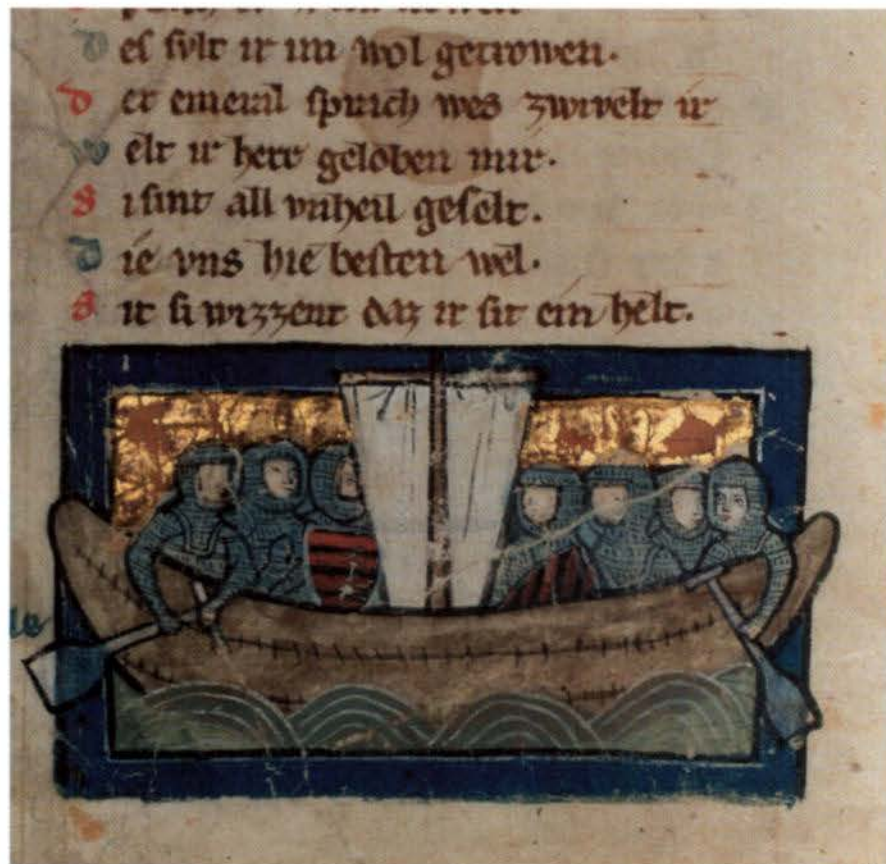 es svlt ir im wol getrowen.
der emeral sprach wes zwivelt ir
welt ir herr geloben mir.
si sint all vnheil geselt.
die vns hie besten wel.
sit si wizzent daz ir sit ein helt.